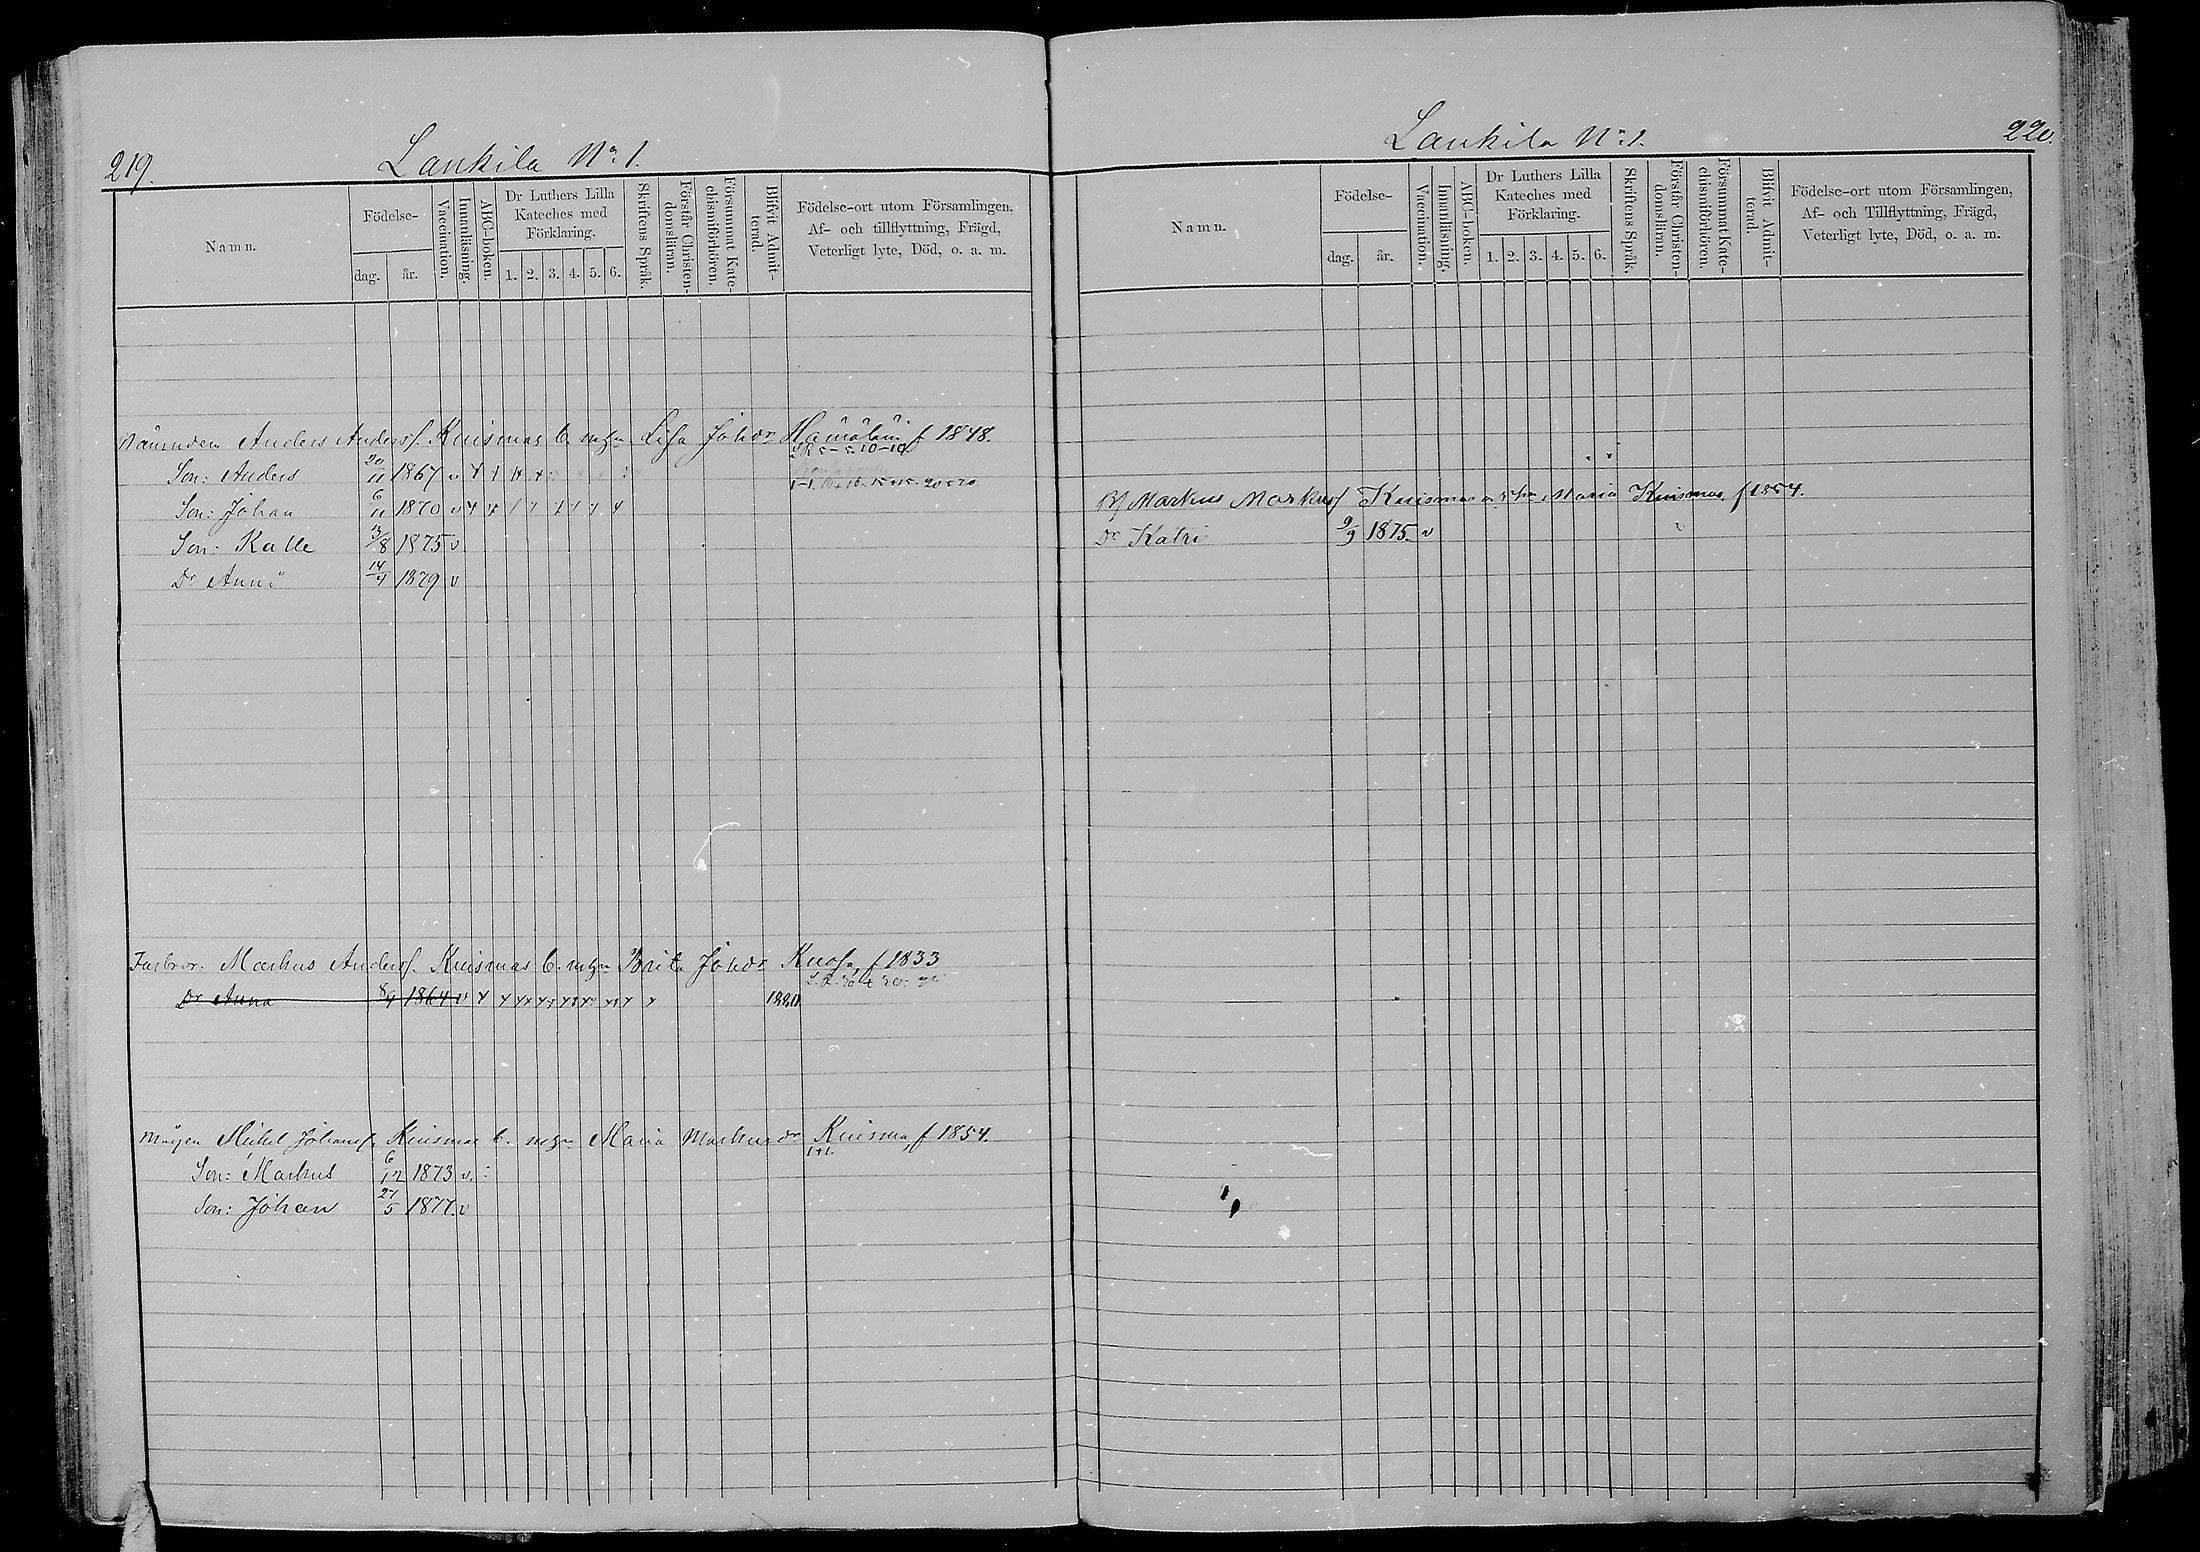 219.
Lankila No 1.
Namn.
Födelse-
dag.
år.
Vaccination.
Innanläsning.
ABC-boken.
Dr Luthers Lilla
Kateches med
Förklaring.
1. 2. 3. 4. 5. 6.
Skriftens Språk.
Förstår Christen-
domsläran.
Försummat Kate-
chismiförhören.
Blifvit Admit-
terad.
Födelse-ort utom Församlingen,
Af- och tillflyttning, Frägd,
Veterligt lyte, Död, o. a. m.
Nämndem Anders Anders. Kuismas b. m hu Lisa Johdr Hämäläin. f 1848.
Son: Anders 20/11 1867 v
Son: Johan 6/11 1870 v
Son: Kalle 13/8 1875 v
Dr Anni 14/4 1879 v
Farbror. Markus Anders. Kuismas b. m hu Brita Johdr Kuosa f 1833
Dr Anna 8/4 1864 v 1880
Mågen Mickel Johans. Kuismas b. m hu Maria Markusdr Kuisma f 1854.
1+1.
Son: Markus 6/12 1873 v.
Son: Johan 27/5 1877. v
Lankila No 1.
220.
Namn.
Födelse-
dag.
år.
Vaccination.
Innanläsning.
ABC-boken.
Dr Luthers Lilla
Kateches med
Förklaring.
1. 2. 3. 4. 5. 6.
Skriftens Språk.
Förstår Christen-
domsläran.
Försummat Kate-
chismiförhören.
Blifvit Admit-
terad.
Födelse-ort utom Församlingen,
Af- och Tillflyttning, Frägd,
Veterligt lyte, Död, o. a. m.
Markus Markus Kuismas Maria Kuisma f 1854.
Dr Katri 9/9 1875. v